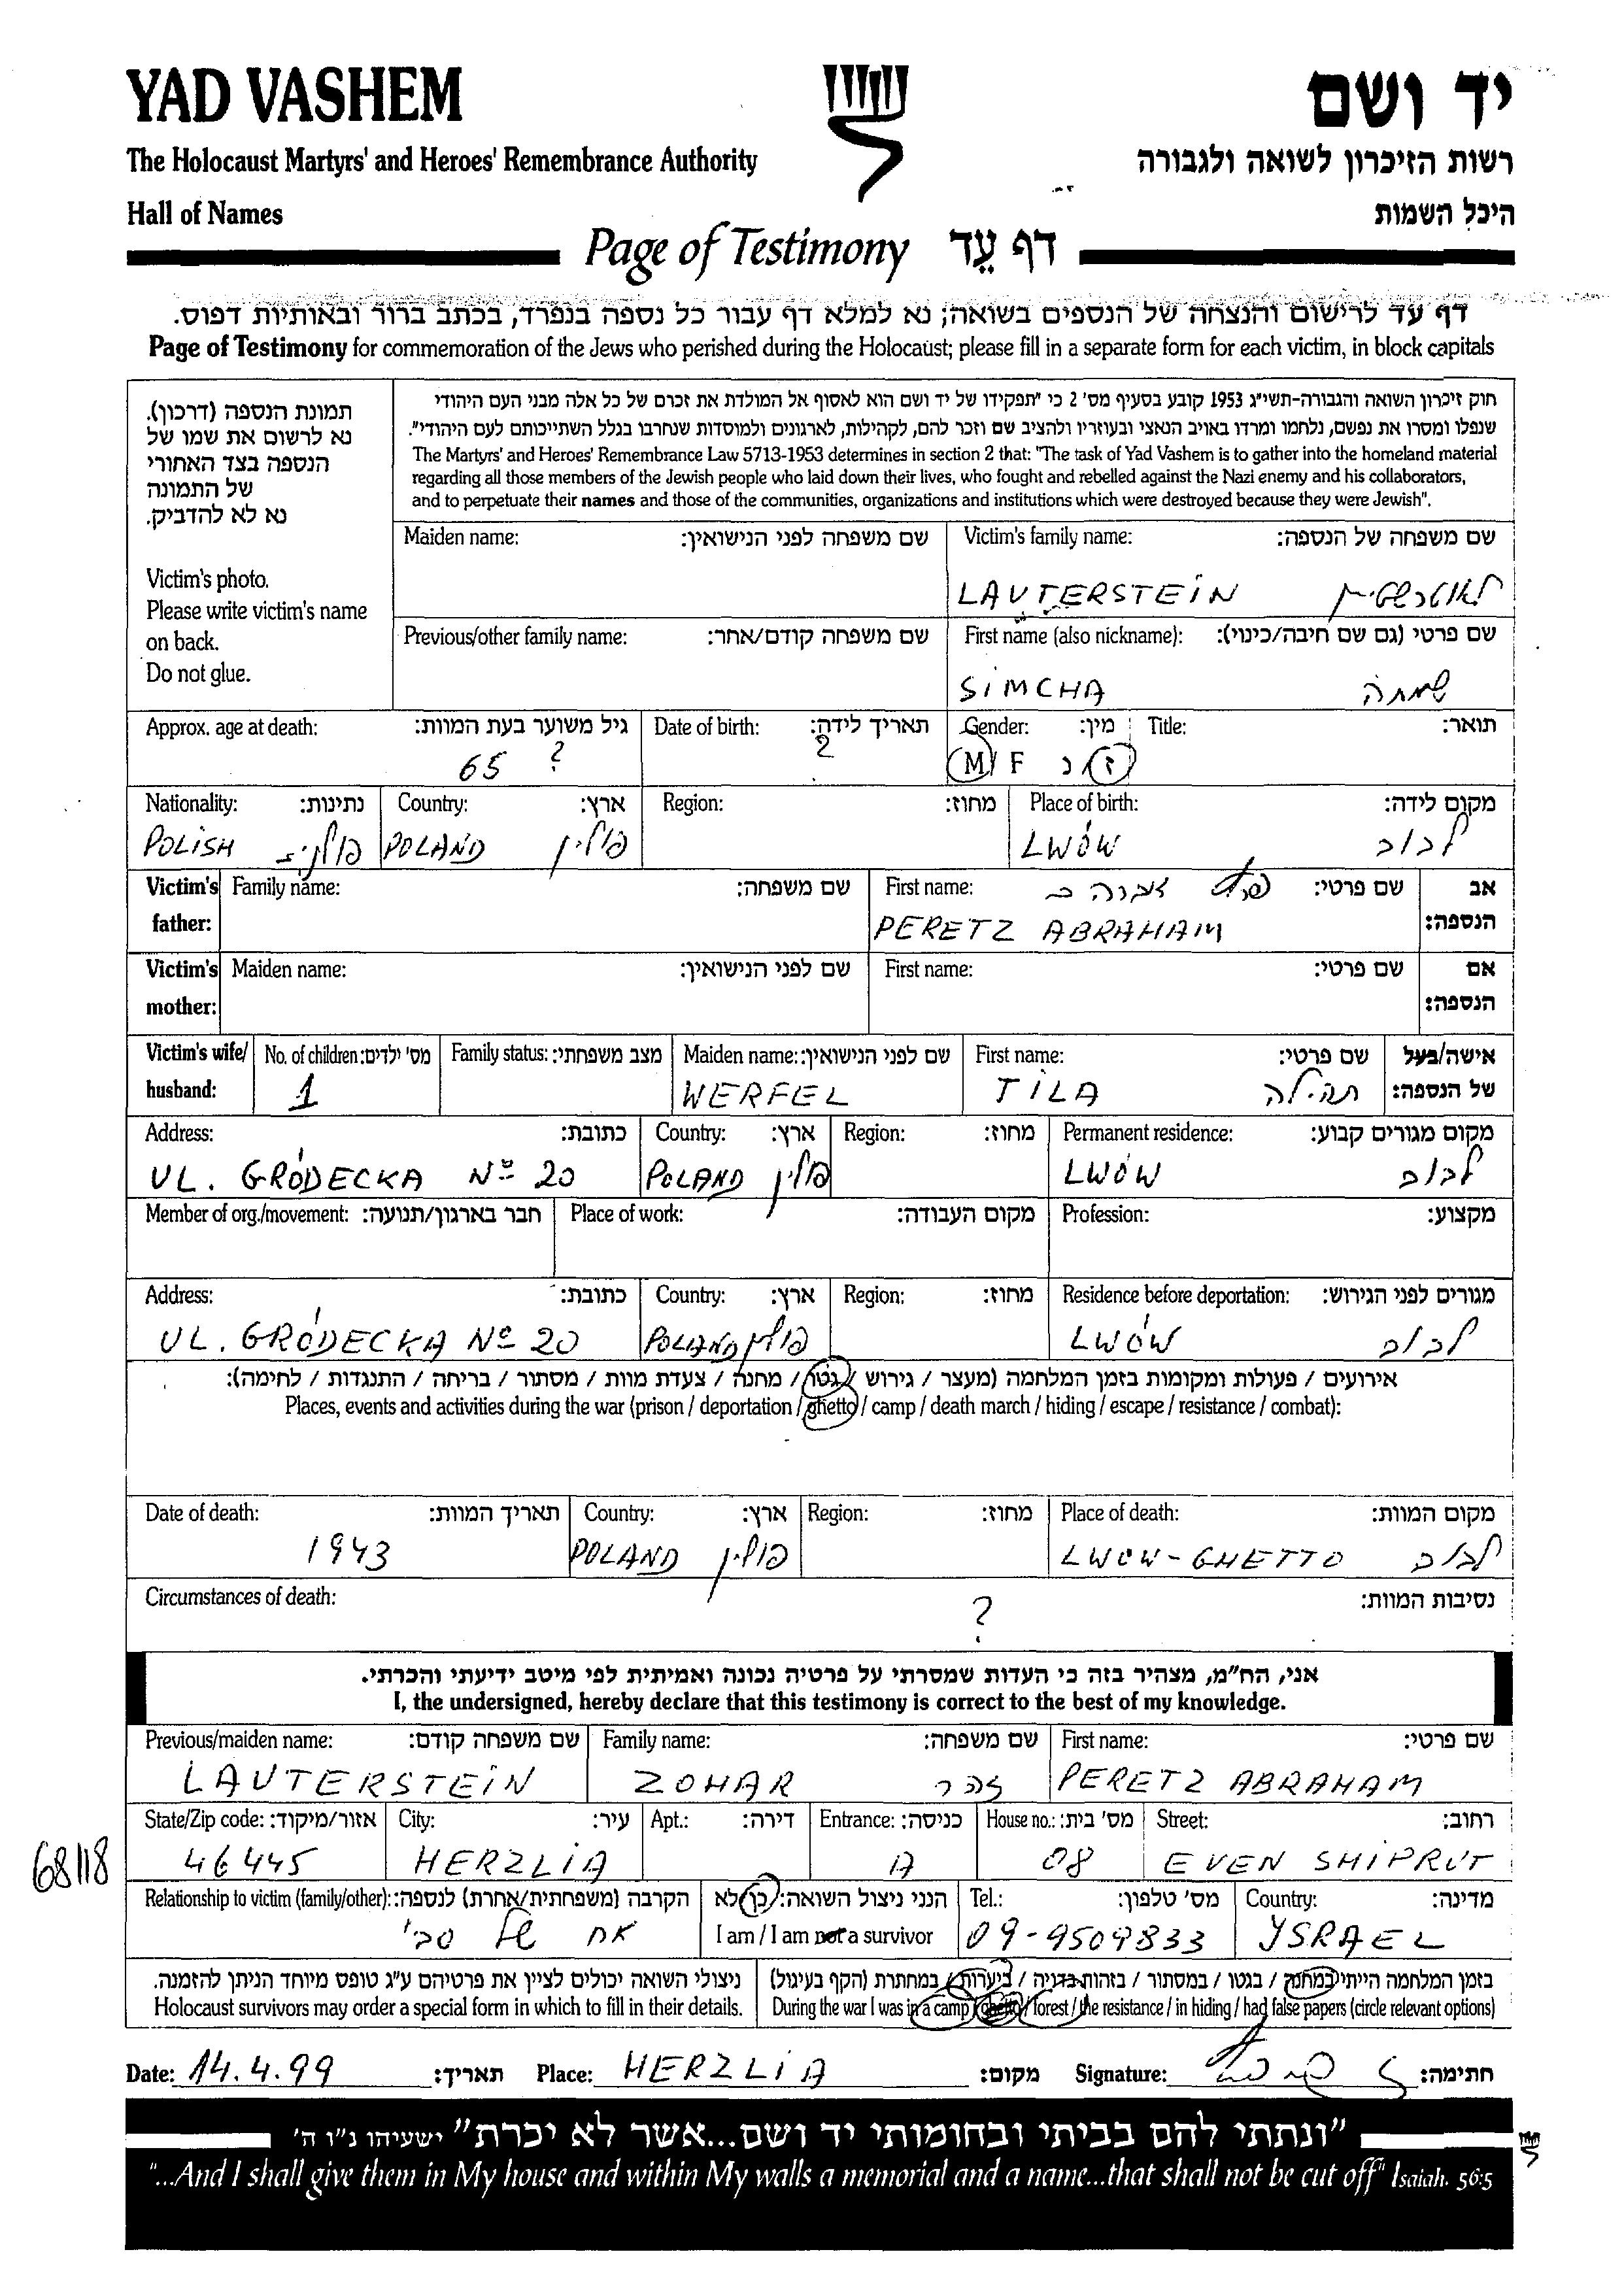 YAD VASHEM יד ושם
The Holocaust Martyrs' and Heroes' Remembrance Authority רשות הזיכרון לשואה ולגבורה
Hall of Names היכל השמות
Page of Testimony דף עֵד
דף עד לרישום והנצחה של הנספים בשואה; נא למלא דף עבור כל נספה בנפרד, בכתב ברור ובאותיות דפוס.
Page of Testimony for commemoration of the Jews who perished during the Holocaust; please fill in a separate form for each victim, in block capitals
תמונת הנספה (דרכון).
נא לרשום את שמו של
הנספה בצד האחורי
של התמונה
נא לא להדביק.
Victim's photo.
Please write victim's name
on back.
Do not glue.
חוק זיכרון השואה והגבורה-תשי״ג 1953 קובע בסעיף מס' 2 כי "תפקידו של יד ושם הוא לאסוף אל המולדת את זכרם של כל אלה מבני העם היהודי
שנפלו ומסרו את נפשם, נלחמו ומרדו באויב הנאצי ובעוזריו ולהציב שם וזכר להם, לקהילות, לארגונים ולמוסדות שנחרבו בגלל השתייכותם לעם היהודי".
The Martyrs' and Heroes' Remembrance Law 5713-1953 determines in section 2 that: "The task of Yad Vashem is to gather into the homeland material
regarding all those members of the Jewish people who laid down their lives, who fought and rebelled against the Nazi enemy and his collaborators,
and to perpetuate their names and those of the communities, organizations and institutions which were destroyed because they were Jewish".
Maiden name: שם משפחה לפני הנישואין: Victim's family name: שם משפחה של הנספה:
LAUTERSTEIN לאוטרשטיין
Previous/other family name: שם משפחה קודם/אחר: First name (also nickname): שם פרטי (גם שם חיבה/כינוי):
SIMCHA שמחה
Approx. age at death: גיל משוער בעת המוות: Date of birth: תאריך לידה: Gender: מין: Title: תואר:
65 ? ? M/ F ז/ נ
Nationality: נתינות: Country: ארץ: Region: מחוז: Place of birth: מקום לידה:
POLISH פולנית POLAND פולין LWÓW לבוב
Victim's Family name: שם משפחה: First name: פרץ אברהם שם פרטי: אב
father: PERETZ ABRAHAM הנספה:
Victim's Maiden name: שם לפני הנישואין: First name: שם פרטי: אם
mother: הנספה:
Victim's wife/ No. of children: מס' ילדים: Family status: מצב משפחתי: Maiden name: שם לפני הנישואין: First name: שם פרטי: אישה/בעל
husband: 1 WERFEL TILA תהילה של הנספה:
Address: כתובת: Country: ארץ: Region: מחוז: Permanent residence: מקום מגורים קבוע:
UL. GRÓDECKA No 20 POLAND פולין LWÓW לבוב
Member of org./movement: חבר בארגון/תנועה: Place of work: מקום העבודה: Profession: מקצוע:
Address: כתובת: Country: ארץ: Region: מחוז: Residence before deportation: מגורים לפני הגירוש:
UL. GRÓDECKA No 20 POLAND פולין LWÓW לבוב
אירועים / פעולות ומקומות בזמן המלחמה (מעצר / גירוש / גטו / מחנה / צעדת מוות / מסתור / בריחה / התנגדות / לחימה):
Places, events and activities during the war (prison / deportation / ghetto / camp / death march / hiding / escape / resistance / combat):
Date of death: תאריך המוות: Country: ארץ: Region: מחוז: Place of death: מקום המוות:
1943 POLAND פולין LWOW-GHETTO לבוב
Circumstances of death: ? נסיבות המוות:
אני, הח״מ, מצהיר בזה כי העדות שמסרתי על פרטיה נכונה ואמיתית לפי מיטב ידיעתי והכרתי.
I, the undersigned, hereby declare that this testimony is correct to the best of my knowledge.
Previous/maiden name: שם משפחה קודם: Family name: שם משפחה: First name: שם פרטי:
LAUTERSTEIN ZOHAR זהר PERETZ ABRAHAM
State/Zip code: אזור/מיקוד: City: עיר: Apt.: דירה: Entrance: כניסה: House no.: מס' בית: Street: רחוב:
68118 46445 HERZLIA A 08 EVEN SHIPRUT
Relationship to victim (family/other): הקרבה (משפחתית/אחרת) לנספה: הנני ניצול השואה: כן/לא Tel.: מס' טלפון: Country: מדינה:
אח של סבי I am / I am not a survivor 09-9509833 YSRAEL
ניצולי השואה יכולים לציין את פרטיהם ע״ג טופס מיוחד הניתן להזמנה. בזמן המלחמה הייתי במחנה / בגטו / במסתור / בזהות בדויה / ביערות / במחתרת (הקף בעיגול)
Holocaust survivors may order a special form in which to fill in their details. During the war I was in a camp / ghetto / forest / the resistance / in hiding / had false papers (circle relevant options)
Date: 14.4.99 תאריך: Place: HERZLIA מקום: Signature: חתימה:
"ונתתי להם בביתי ובחומותי יד ושם...אשר לא יכרת" ישעיהו נ״ו ה'
"...And I shall give them in My house and within My walls a memorial and a name...that shall not be cut off" Isaiah. 56:5